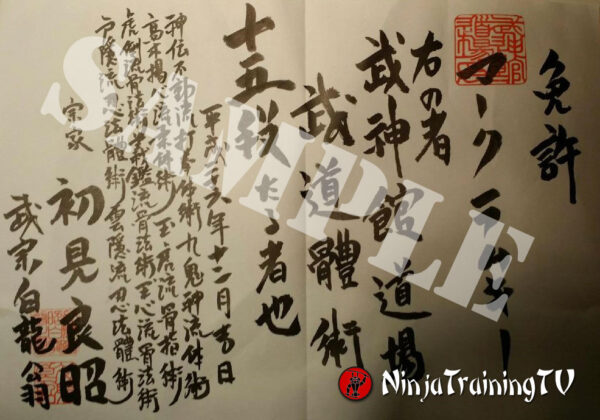 免許
マークラムキー
右の者
武神館道場
武道體術
十五段たる者也
平成二十六年十二月吉日
神伝不動流打拳体術九鬼神流体術
高木揚心流柔体術玉虎流骨指術
虎倒流骨法術義鑑流骨法術玉心流骨法術
戸隠流忍法體術雲隠流忍法體術
宗家 初見良昭
武宗白龍翁
SAMPLE
NinjaTrainingTV